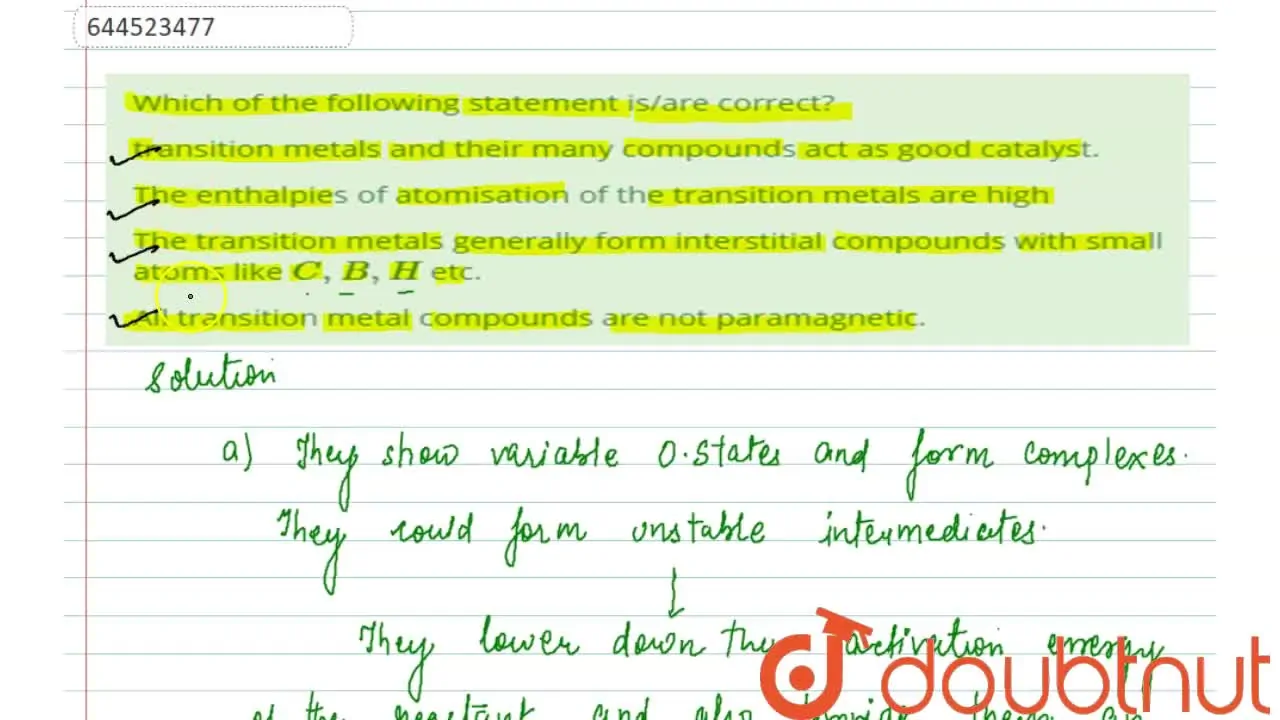 644523477
Which of the following statement is/are correct?
transition metals and their many compounds act as good catalyst.
The enthalpies of atomisation of the transition metals are high
The transition metals generally form interstitial compounds with small
atoms like C, B, H etc.
All transition metal compounds are not paramagnetic.
Solution
a) They show variable O.States and form complexes.
They could form unstable intermediates.
↓
They lower down the activation energy
of the reactant and also
doubtnut